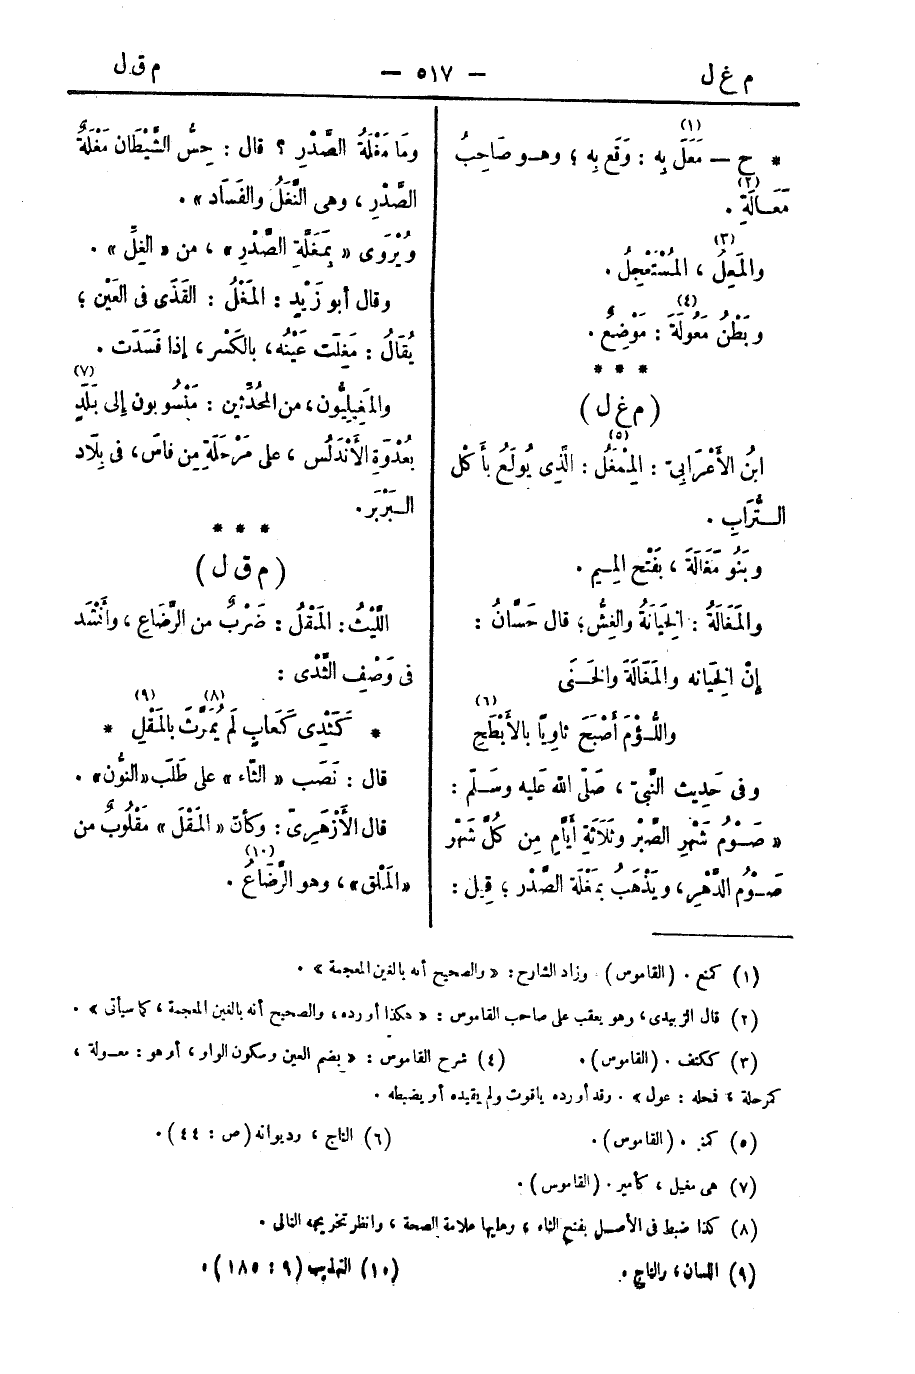 م غ ل
— ٥١٧ —
م ق ل
(١)
* ح — مَعَلَ بِهِ : وَقَع بِه ؛ وهـو صَاحِبُ
(٢)
مَعَـالَةٍ .
(٣)
والمَعِلُ ، المُسْتَعْجِلُ .
(٤)
وبَطْنُ مَعُولَةَ : مَوْضِعٌ .
* * *
( م غ ل )
(٥)
ابنُ الأَعْرَابِيّ : المِمْغَلُ : الَّذِى يُولَعُ بأَكْل
التُّرَابِ .
وبَنُو مَغَالَةَ ، بفَتْح المِـيم .
والمَغَالَةُ : الخِيَانَةُ والغِشُّ ؛ قال حَسَّانُ :
إنّ الخِيانه والمَغَالَةَ والخَـنَى
(٦)
واللُّـؤْمَ أَصْبَحَ ثاوِيًا بالأَبْطَحِ
وفى حَدِيث النَّبِيّ ، صَلّى الله عَليه وسَـلّم :
« صَـوْمُ شَهْرِ الصَّبْر وثَلَاثَةِ أيَّامٍ مِن كُلِّ شَهْرٍ
صَـوْمُ الدَّهْرِ، ويَذْهَبُ بمَغْلَةِ الصَّدْر ؛ قِيل :
وما مَغْلَةُ الصَّدْرِ ؟ قال : حِسُّ الشَّيْطَان مَغْلَةٌ
الصَّدْرِ ، وهى النَّغَلُ والفَسَاد » .
ويُرْوَى « بِمَغَلَّةِ الصَّدْرِ » ، من « الغِلّ » .
وقال أبو زَيْدٍ : المَغْلُ : القَذَى فى العَيْن ؛
يُقَالُ : مَغِلَت عَيْنُه ، بالكَسْر ، إذا فَسَدَت .
(٧)
والمَغِيلِيُّون ، من المُحَدِّثين : مَنْسُوبون إلى بَلَدٍ
بعُدْوَةِ الأَنْدَلُس ، على مَرْحَلَةٍ مِن فاسَ ، فى بِلَاد
البَرْبَر .
* * *
( م ق ل )
اللَّيْثُ : المَقْلُ : ضَرْبٌ من الرَّضَاعِ ، وأَنْشَد
فى وَصْفِ الثَّدْى :
(٨) (٩)
* كَثَدْىِ كَعَابٍ لَم يُمَرَّثَ بالمَقْلِ *
قال : نَصَب « الثَّاء » على طَلَب « النُّون » .
قال الأَزْهَرِىّ : وكأنّ « المَقْلَ » مَقْلُوبٌ من
(١٠)
« المَلْق » ، وهو الرَّضَاعُ .
(١) كمنع . (القاموس) . وزاد الشارح : « والصحيح أنه بالغين المعجمة » .
(٢) قال الزبيدى، وهو يعقب على صاحب القاموس : « هكذا أورده ، والصحيح أنه بالغين المعجمة ، كما سيأتى » .
(٣) ككتف . (القاموس) . (٤) شرح القاموس : « بضم العين وسكون الواو ، أو هو : معـولة ،
كمرحلة ، فحله : عول » . وقد أورده ياقوت ولم يقيده أو يضبطه .
(٥) كمنبر . (القاموس) . (٦) التاج ، وديوانه (ص : ٤٤) .
(٧) هى مغيل ، كأمير . (القاموس) .
(٨) كذا ضبط فى الأصـل بفتح الثاء ، وعليها علامة الصحة ، وانظر تخريجه التالى .
(٩) اللسان ، والتاج . (١٠) التهذيب (٩ : ١٨٥) .